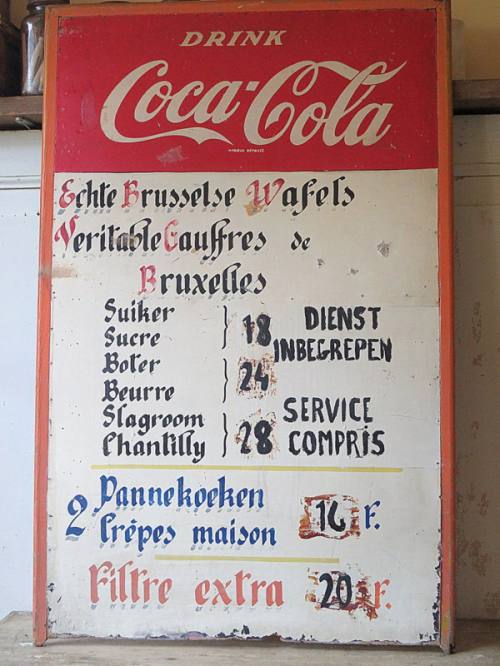 DRINK
Coca-Cola
Echte Brusselse Wafels
Veritable Gauffres de
Bruxelles
Suiker
Sucre } 18 DIENST
INBEGREPEN
Boter
Beurre } 24
Slagroom
Chantilly } 28 SERVICE
COMPRIS
2 Pannekoeken
Crêpes maison 16 F.
Filtre extra 20 F.